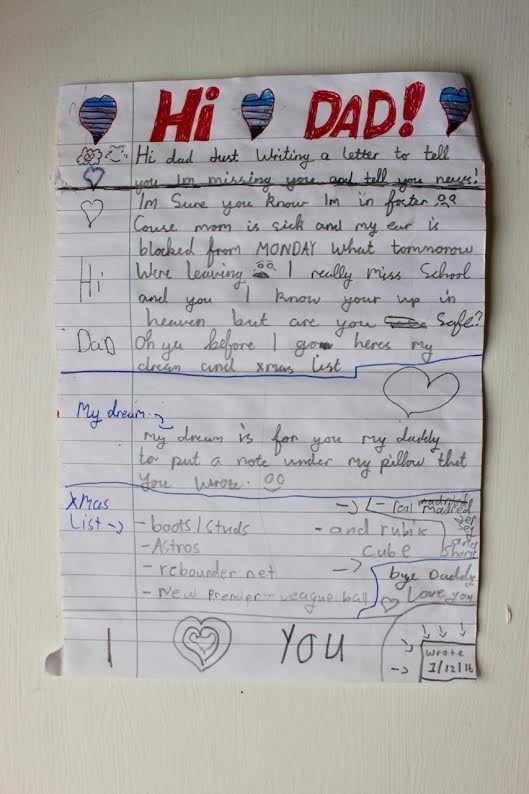 Hi DAD!
Hi dad Just Writing a letter to tell
you Im missing you and tell you news!
Im Sure you know Im in foster
Couse mom is sick and my ear is
blocked from MONDAY What tommorow
Hi
Were leaving I really miss School
and you I know your up in
heaven but are you Safe?
Dad
Oh ya before I go heres my
dream and xmas List
My dream
my dream is for you my daddy
to put a note under my pillow that
you wrote.
Xmas
List
- boots/studs
- Astros
- rebounder net
- New Premier-League ball
- real madrid
jersey
and
short
- and rubix
cube
bye Daddy
Love you
I YOU
wrote
1/12/16